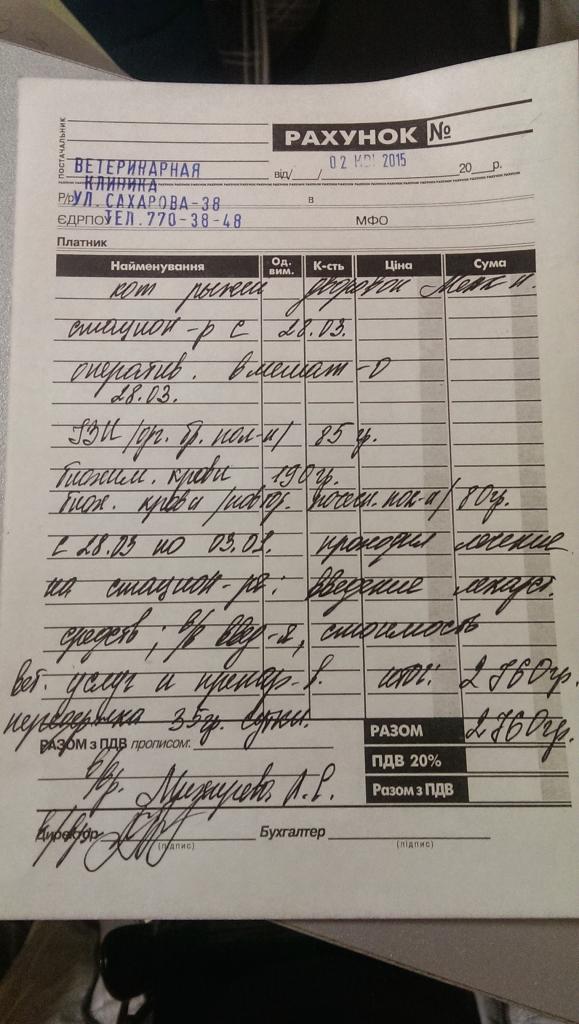 ПОСТАЧАЛЬНИК
РАХУНОК №
ВЕТЕРИНАРНАЯ
від / / 02 КВІ 2015 20 р.
КЛИНИКА
Р/р в
УЛ.САХАРОВА-38
ЄДРПОУ ТЕЛ.770-38-48 МФО
Платник
Найменування Од. вим. К-сть Ціна Сума
кот рыжей дворовой
стацион-р с 28.03.
оператив. вмешат-о
28.03.
УЗИ /ор. бр. пол-и/ 85 гр.
биохим. крови 190гр.
биох. крови /повтор. почечн. пок-и/ 80гр.
с 28.03 по 03.04. проходил лечение
на стацион-ре: введение лекарст.
средств; в/в введ-я, стоимость
вет. услуг и препар-в. итог: 2760гр.
передержка 35гр. сутки.
РАЗОМ 2760гр.
РАЗОМ з ПДВ прописом:
ПДВ 20%
Разом з ПДВ
Директор Бухгалтер
(підпис) (підпис)